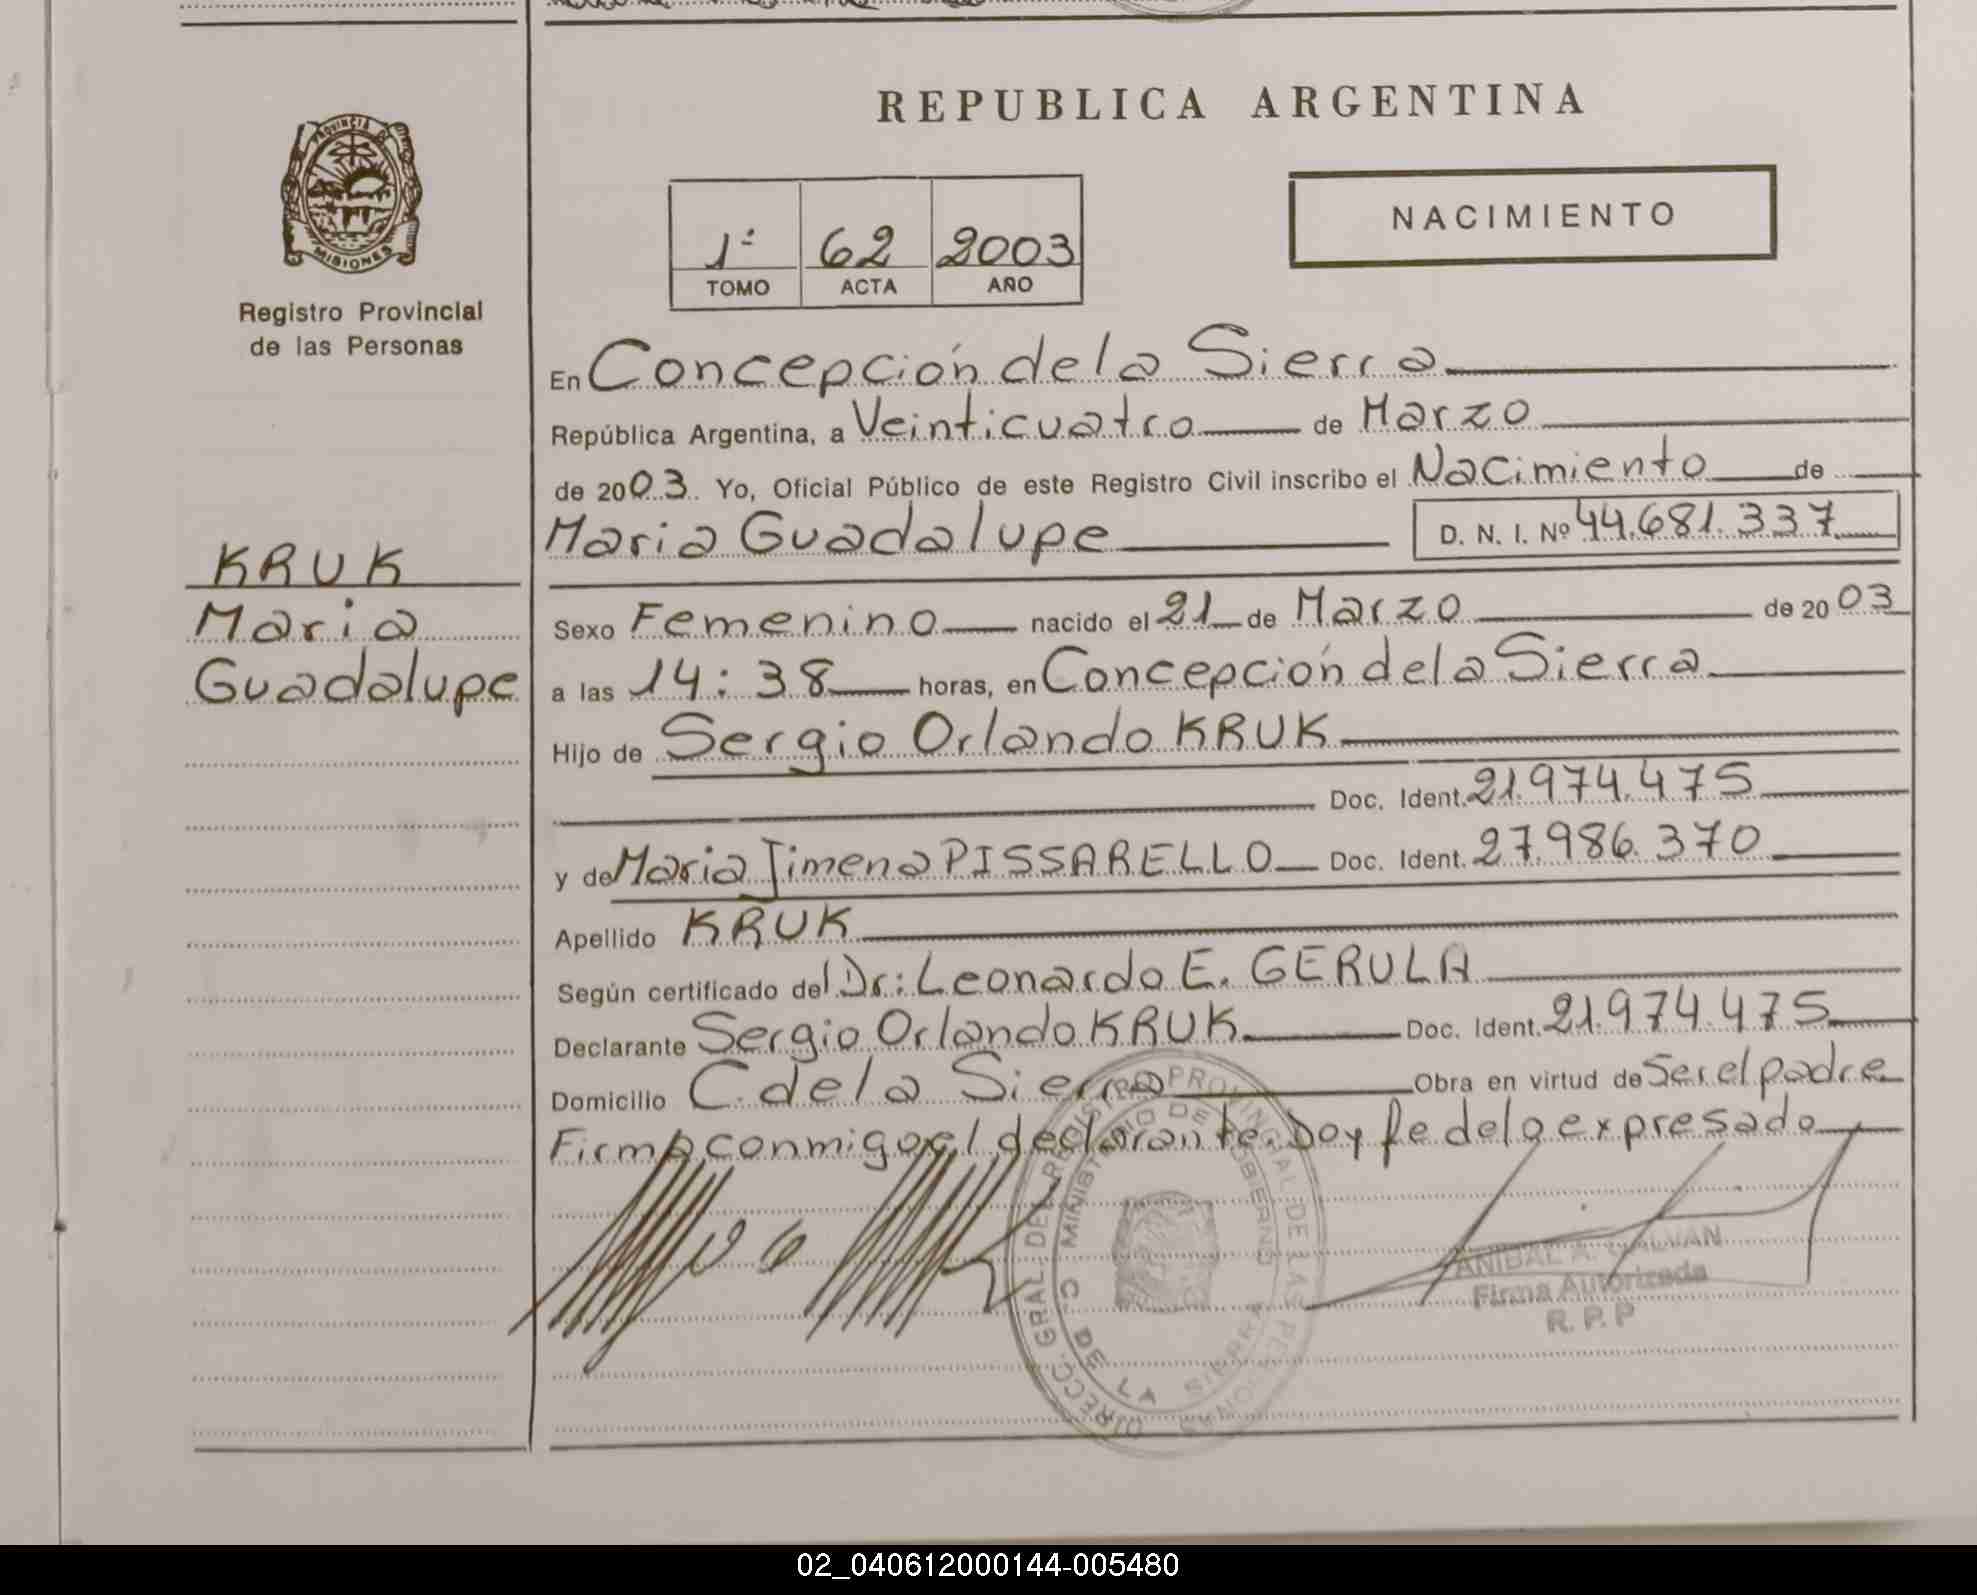 REPUBLICA ARGENTINA
PROVINCIA DE MISIONES
Registro Provincial
de las Personas
1º 62 2003
TOMO ACTA AÑO
NACIMIENTO
KRUK
Maria
Guadalupe
En Concepción de la Sierra
República Argentina, a Veinticuatro de Marzo
de 2003. Yo, Oficial Público de este Registro Civil inscribo el Nacimiento de
Maria Guadalupe D. N. I. Nº 44.681.337
Sexo Femenino nacido el 21 de Marzo de 2003
a las 14:38 horas, en Concepción de la Sierra
Hijo de Sergio Orlando KRUK
Doc. Ident. 21.974.475
y de Maria Jimena PISSARELLO Doc. Ident. 27.986.370
Apellido KRUK
Según certificado del Dr: Leonardo E. GERULA
Declarante Sergio Orlando KRUK Doc. Ident. 21.974.475
Domicilio C. de la Sierra Obra en virtud de Ser el padre
Firma conmigo el declarante. Doy fe de lo expresado
DIRECC. GRAL. DEL REGISTRO PROVINCIAL DE LAS PERSONAS
MINISTERIO DE GOBIERNO
C. DE LA SIERRA
ANIBAL A. GALVAN
Firma Autorizada
R. P. P
02_040612000144-005480